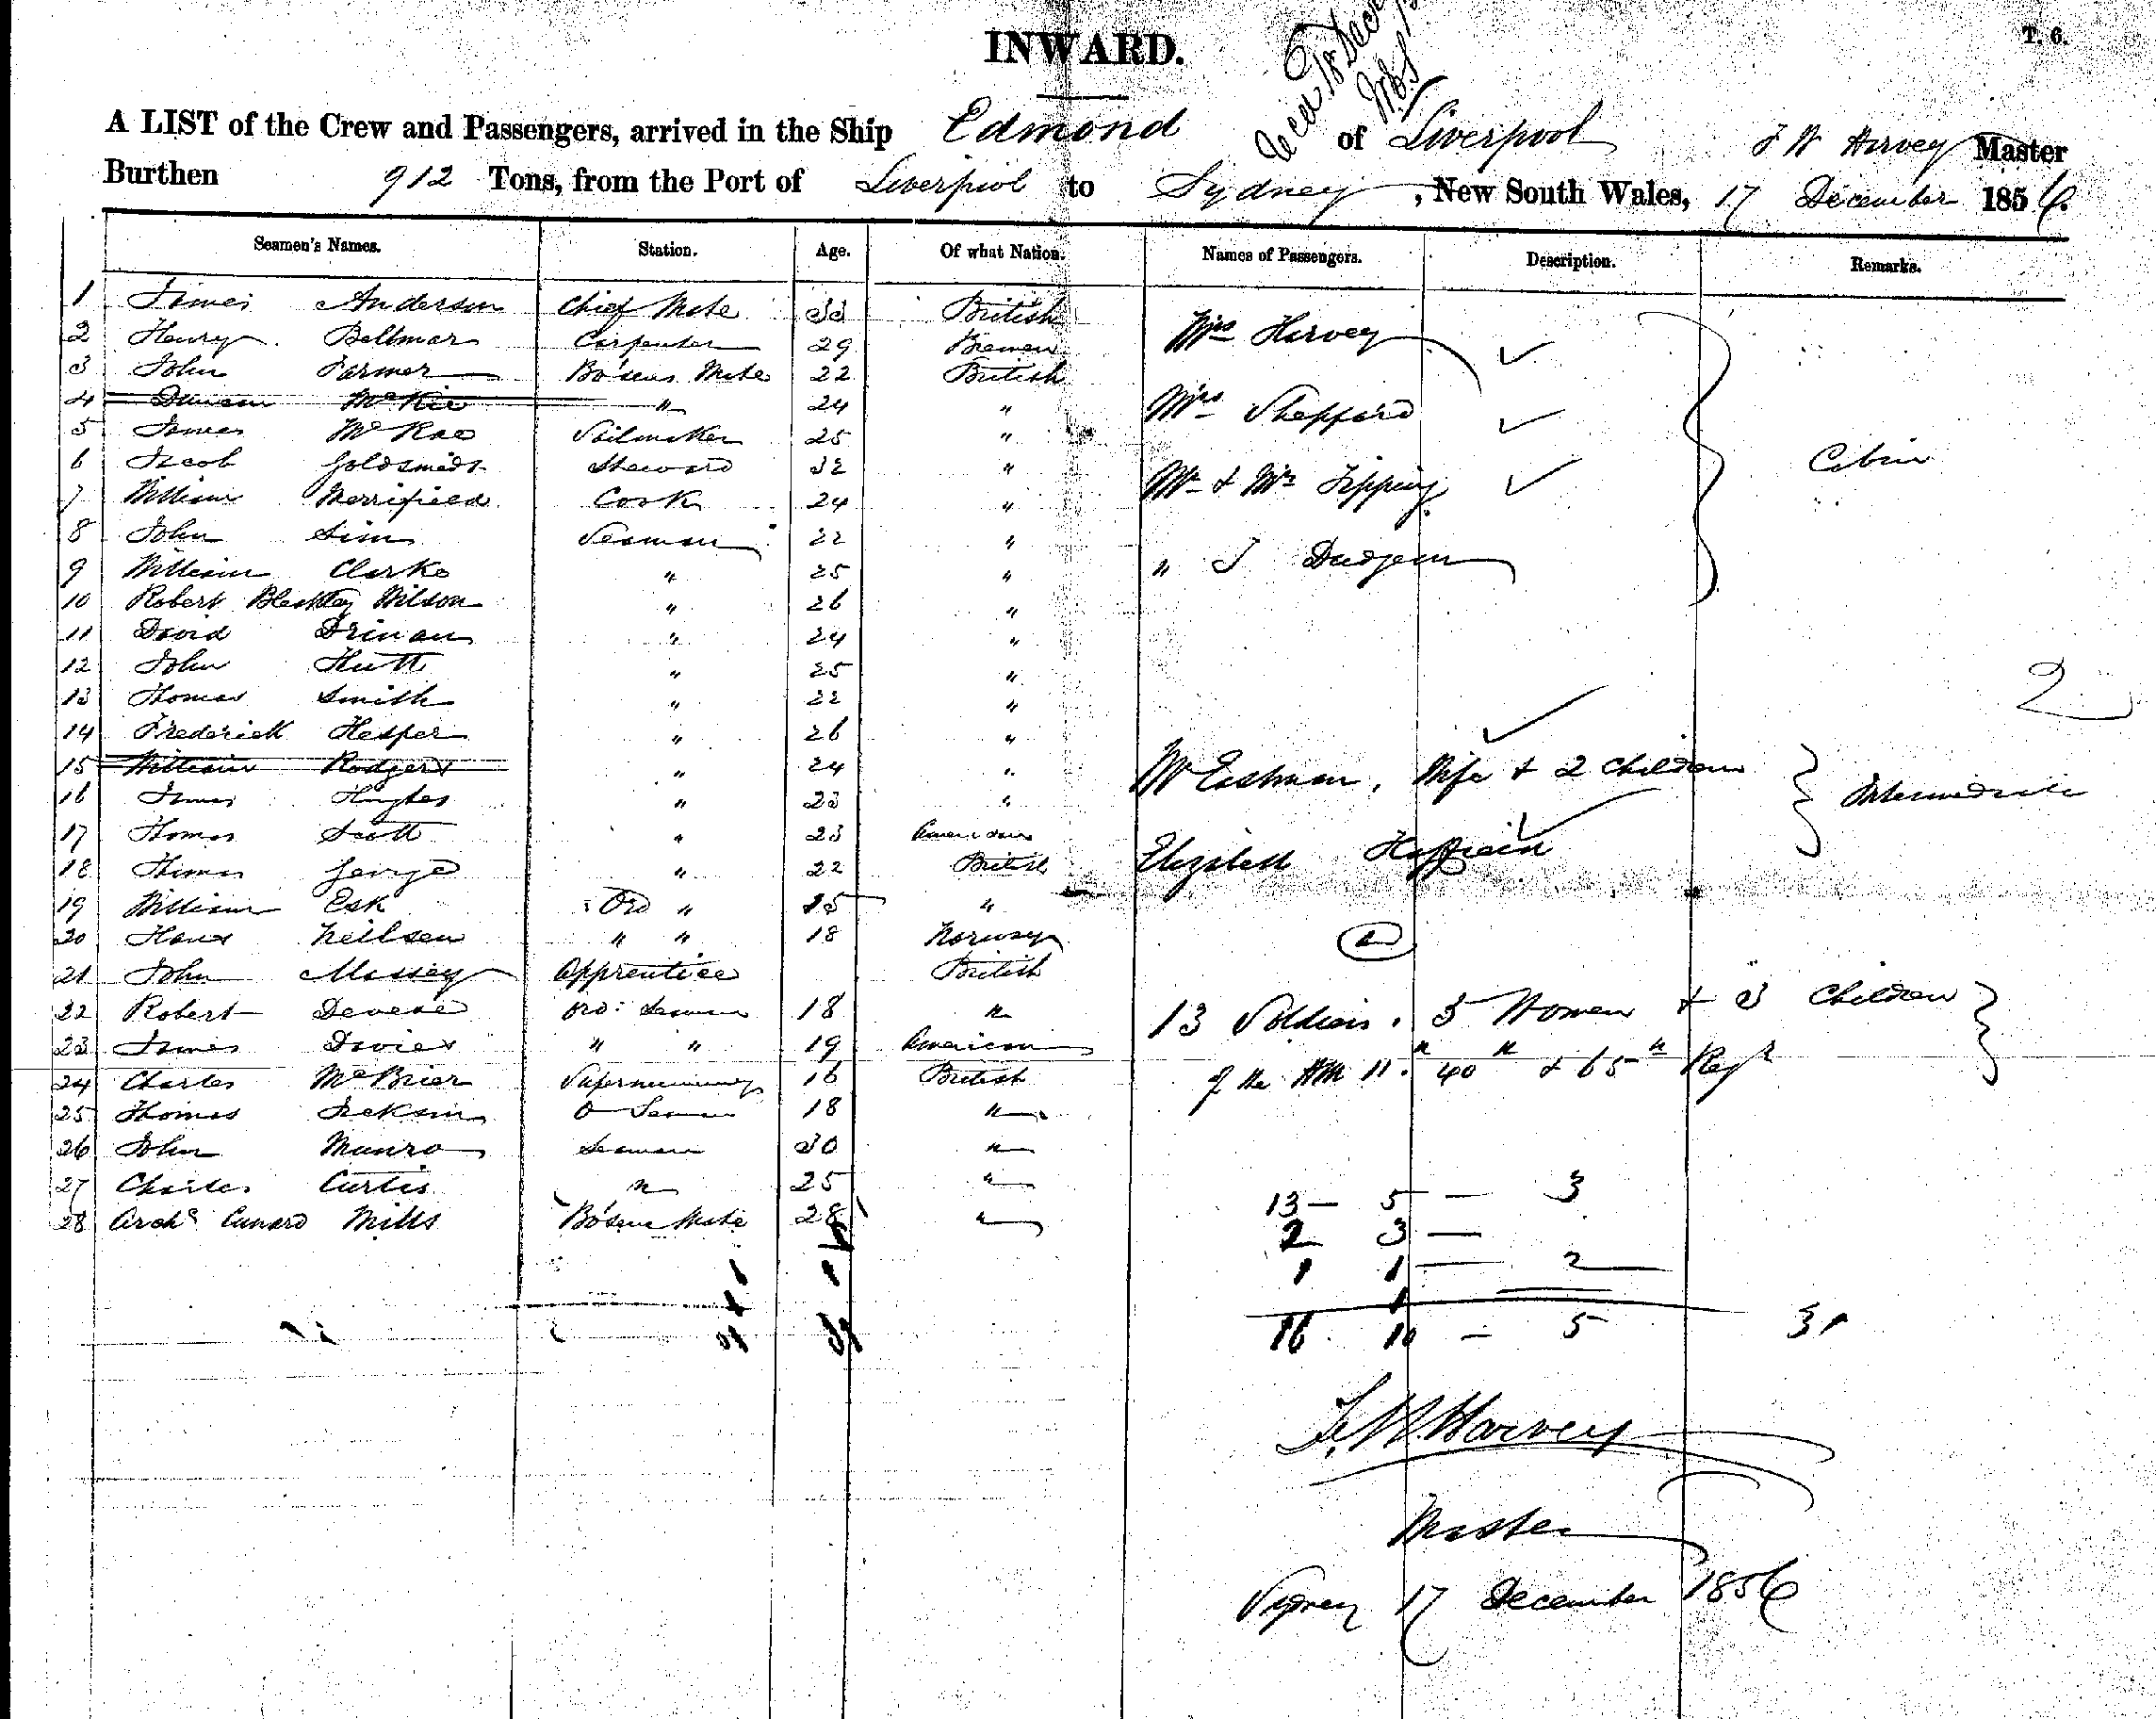 INWARD.
T. 6.
A LIST of the Crew and Passengers, arrived in the Ship Edmond of Liverpool J W Harvey Master
Burthen 912 Tons, from the Port of Liverpool to Sydney, New South Wales, 17 December 1856.
Seamen's Names. Station. Age. Of what Nation. Names of Passengers. Description. Remarks.
1 James Anderson Chief Mate 33 British
2 Henry Bellmar Carpenter 29 Bremen
Mrs Harvey
3 John Farmer Bo'suns Mate 22 British
4 Duncan McKie " 24 "
Mrs Sheppard
5 James McRae Sailmaker 25 "
6 Jacob Goldsmidt Steward 32 "
Cabin
7 William Merrifield Cook 24 "
Mr & Mrs Tipping
8 John Sim Seaman 22 "
9 William Clarke " 25 "
" J Dudgeon
10 Robert Wilson " 26 "
11 David Drinan " 24 "
12 John Hutt " 25 "
2
13 Thomas Smith " 22 "
14 Frederick Hesper " 26 "
15 William Rodgers " 24 "
Mr Eastman, Wife & 2 Children
Intermediate
16 James Hughes " 23 "
17 Thomas Scott " 23 American
Elizabeth
18 Thomas George " 22 British
19 William Esk Ord " "
20 Hans Neilsen " " 18 Norway
21 John Massey Apprentice British
22 Robert Ord: Seaman 18 "
13 Soldiers. 5 Women & 3 Children
23 James Davies " " 19 American
24 Charles McBrier Supernumerary 16 British
of the HM 11. 40th & 65th Regt
25 Thomas Jackson O Seaman 18 "
26 John Munro Seaman 30 "
27 Charles Curtis " 25 "
13 — 5 — 3
28 Archd Cunard Mills Bo'suns Mate 28 "
2 3 —
1 1 — 2
1
16 10 — 5 31
J. W. Harvey
Master
Sydney 17 December 1856